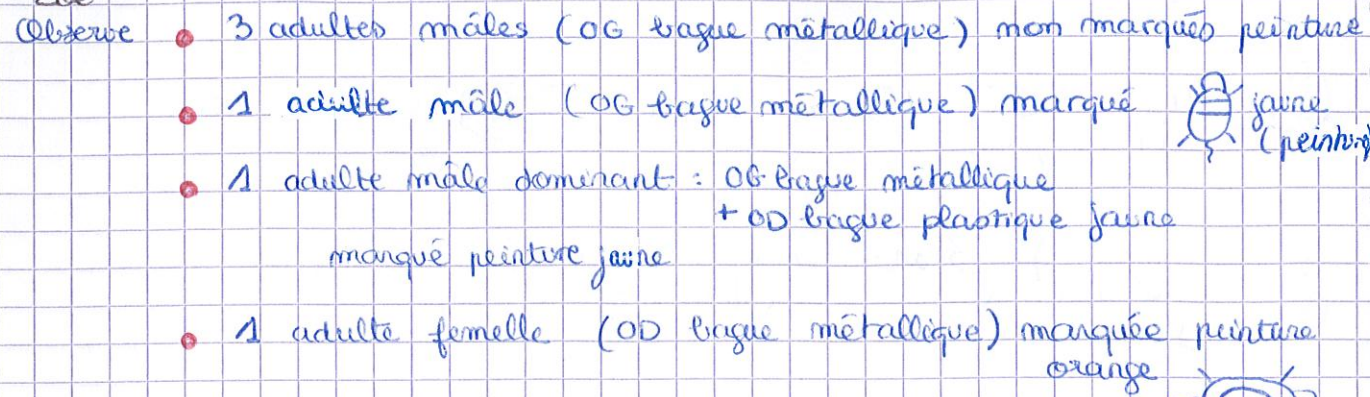 Observe • 3 adultes mâles (OG bague métallique) non marqués peinture
• 1 adulte mâle (OG bague métallique) marqué jaune
(peinture)
• 1 adulte mâle dominant : OG bague métallique
+ OD bague plastique jaune
marqué peinture jaune
• 1 adulte femelle (OD bague métallique) marquée peinture
orange